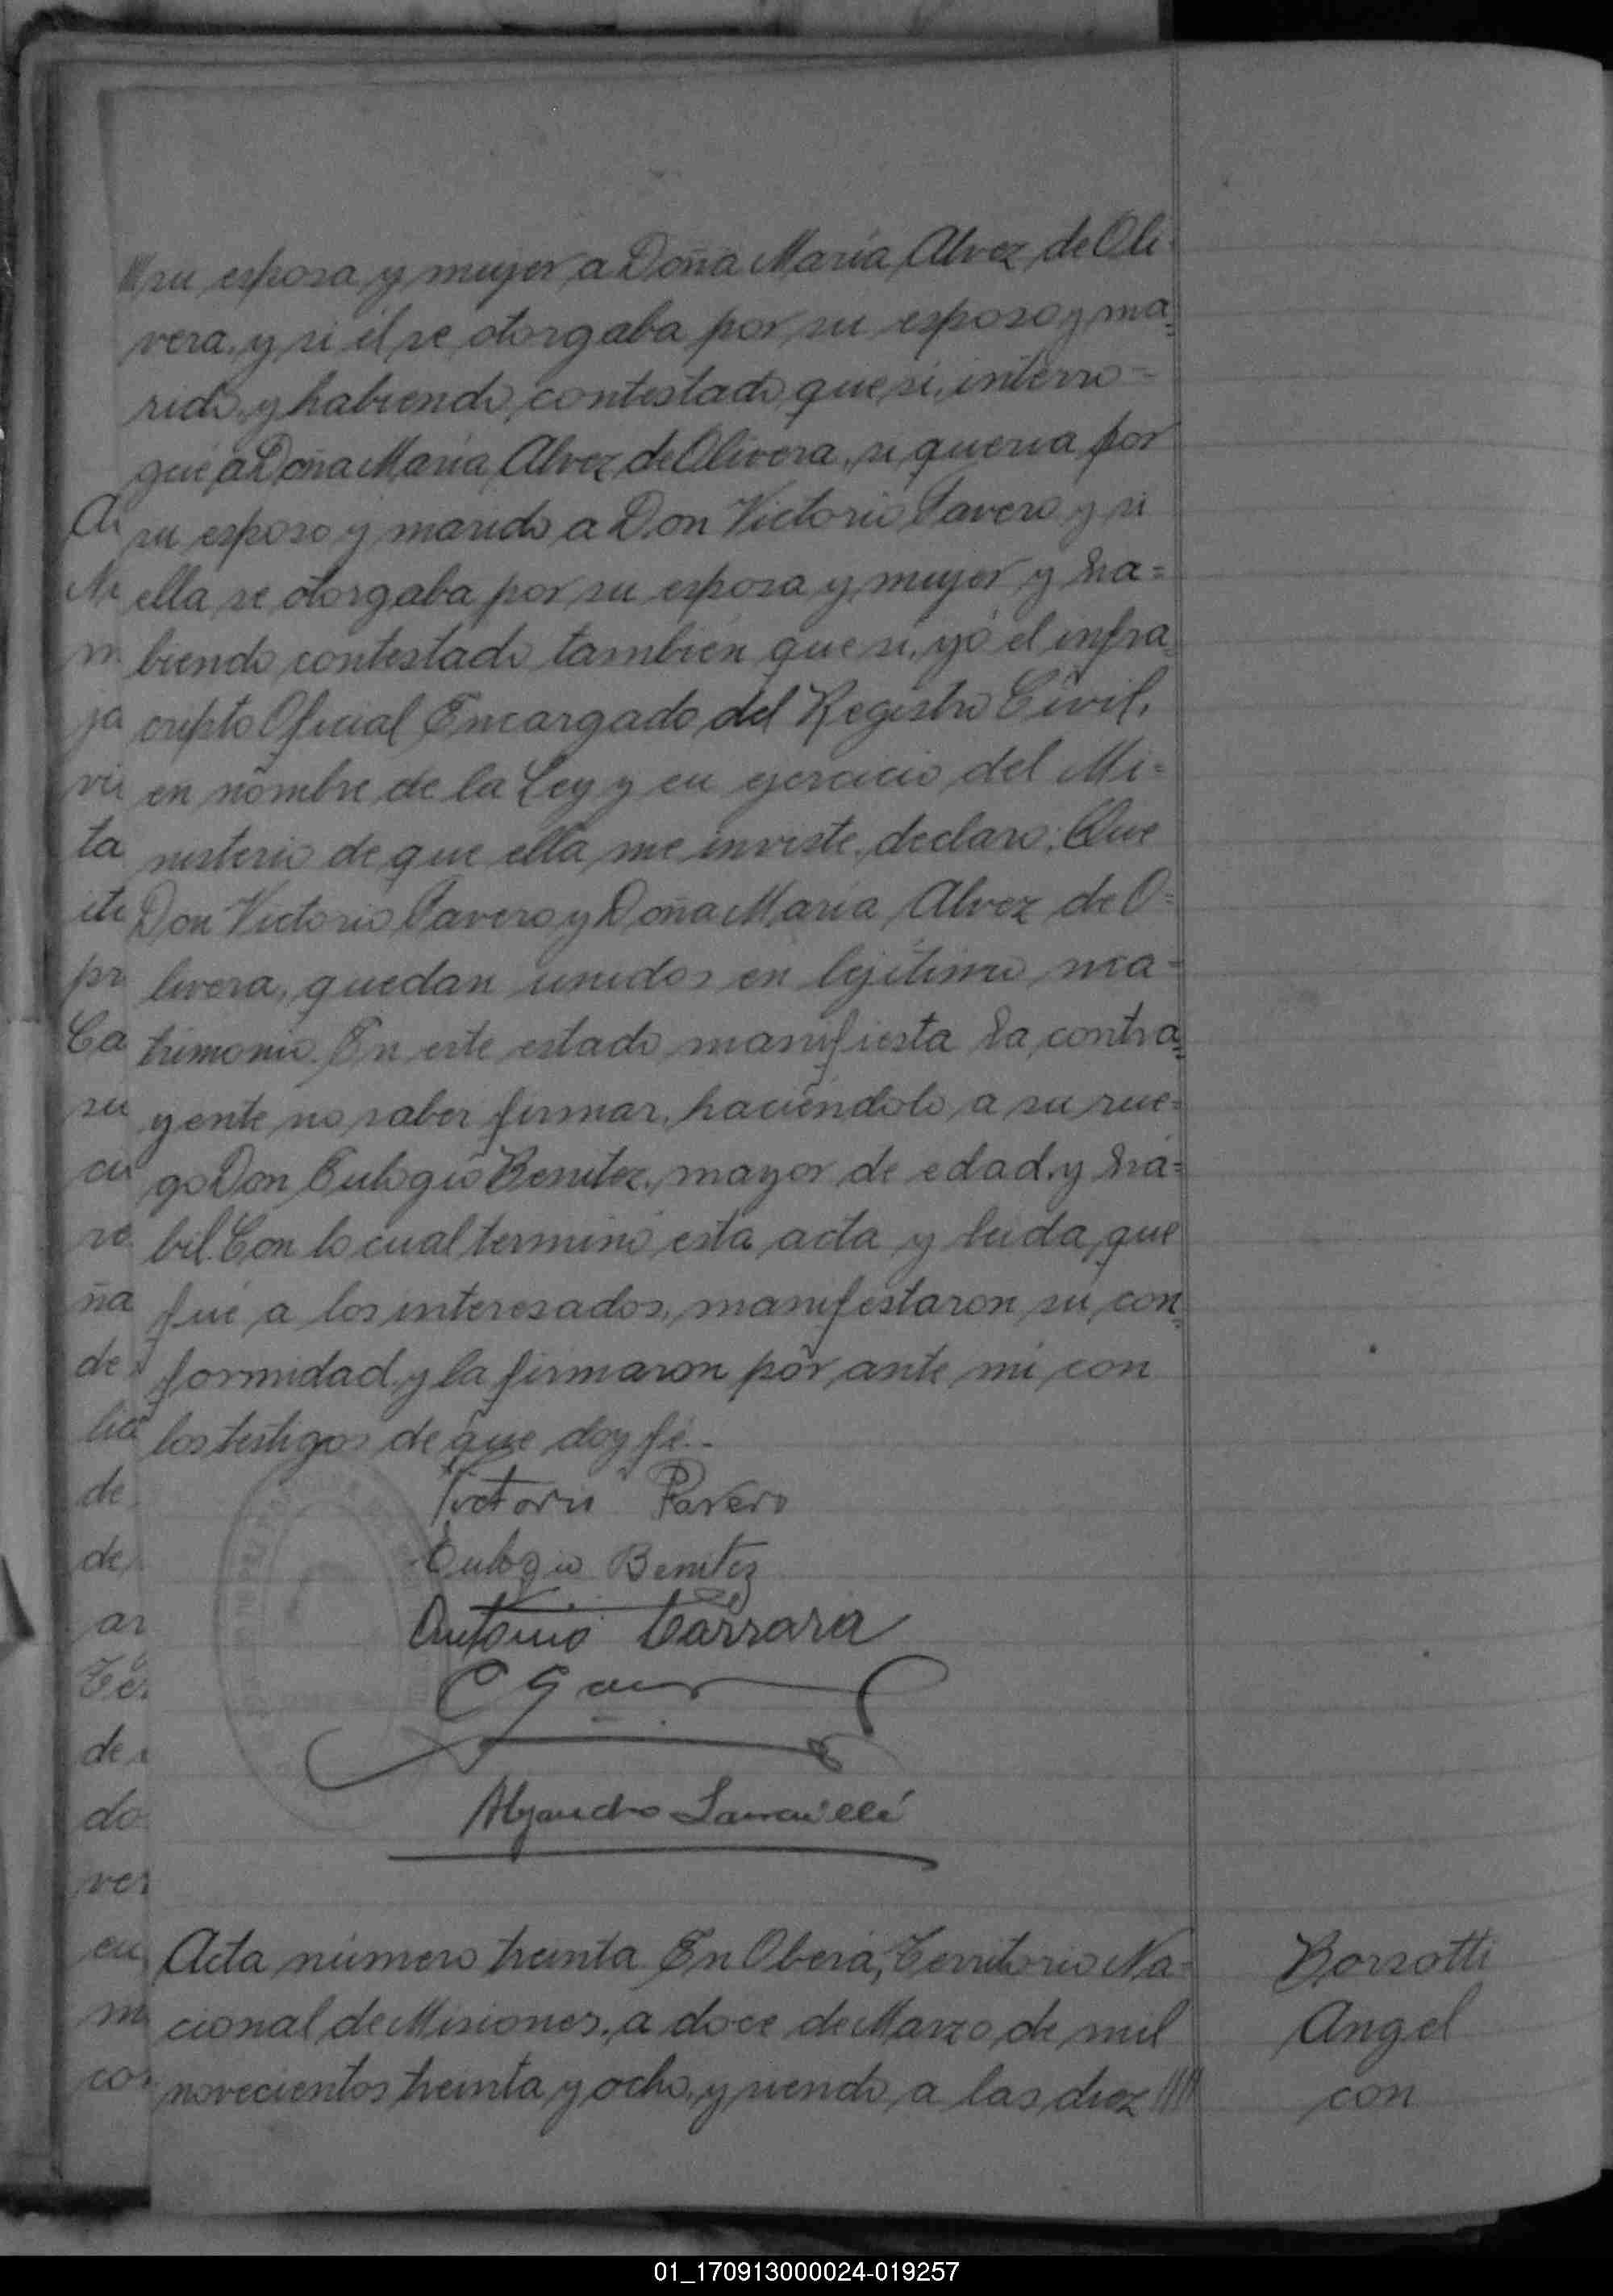 su esposa y mujer a Doña María Alvez de Oli-
vera, y si él se otorgaba por su esposo y ma=
rido, y habiendo contestado que si, interro=
gué a Doña María Alvez de Olivera, si queria por
su esposo y marido a Don Victorio Pavero y si
ella se otorgaba por su esposa y mujer y ha=
biendo contestado también que si, yó el infra=
cripto Oficial Encargado del Registro Civil,
en nombre de la Ley y en ejercicio del Mi=
nisterio de que ella me inviste, declaro: Que
Don Victorio Pavero y Doña María Alvez de O=
livera, quedan unidos en lejítimo ma=
trimonio. En este estado manifiesta la contra=
yente no saber firmar, haciéndolo a su rue=
go Don Eulogio Benitez, mayor de edad, y há=
bil. Con lo cual terminó esta acta y leida que
fué a los interesados, manifestaron su con=
formidad y la firmaron por ante mi con
los testigos de que doy fé.-
Victorio Pavero
Eulogio Benitez
Antonio Carrara
Alejandro
Acta número treinta En Oberá, Territorio Na=
cional de Misiones, a doce de Marzo de mil
novecientos treinta y ocho, y siendo a las diez ////
Borsotti
Angel
con
01_170913000024-019257